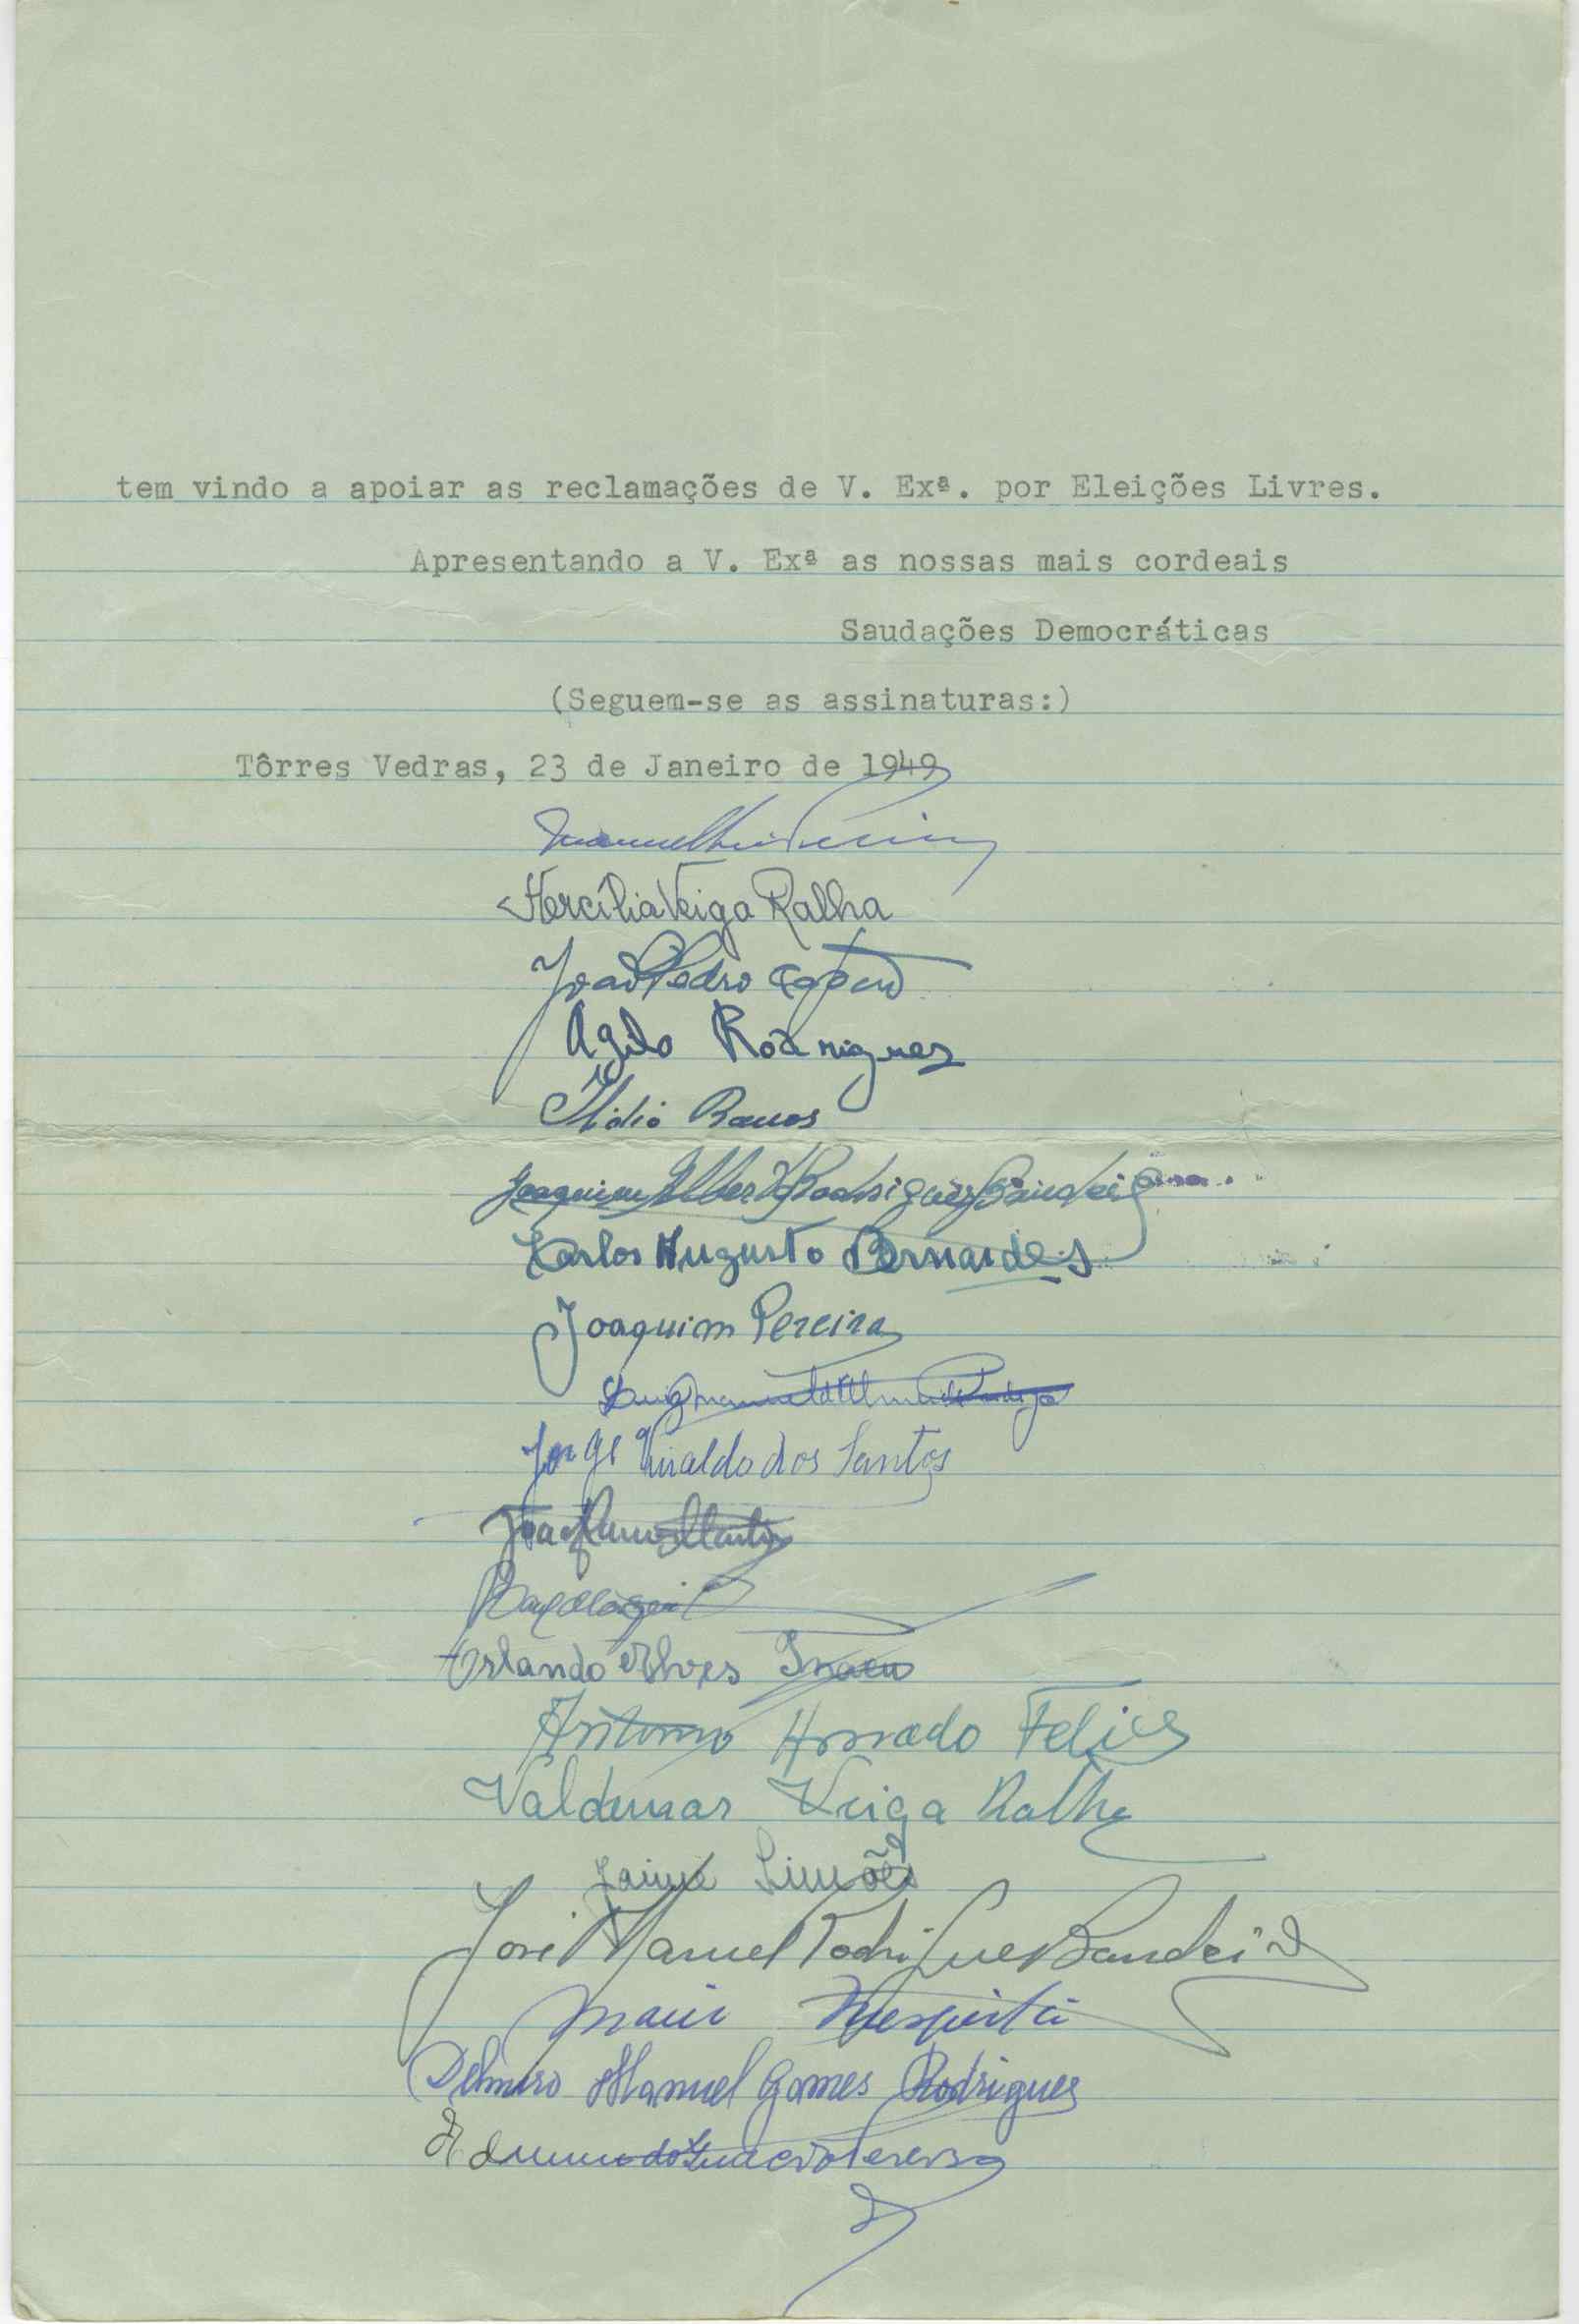 tem vindo a apoiar as reclamações de V. Exª. por Eleições Livres.
Apresentando a V. Exª as nossas mais cordeais
Saudações Democráticas
(Seguem-se as assinaturas:)
Tôrres Vedras, 23 de Janeiro de 1949
Hercília Veiga Ralha
João Pedro
Agilo Rodrigues
Ilidio Ramos
Joaquim Alberto Rodrigues Bandeira
Carlos Augusto Bernardes
Joaquim Pereira
Luiz
Jorge dos Santos
Martins
Orlando Alves
António Honrado Felix
Valdemar Veiga Ralha
Jaime Simões
José Manuel Rodrigues Bandeira
Delmiro Manuel Gomes Rodrigues
Pereira